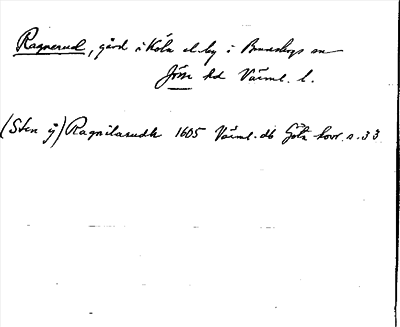 Ragnerud, gård i Köla el. by i Brunskogs sn
Jösse hd Värml. l.
(Sten i) Ragnilarudh 1605 Värml. db Götr. s. 33